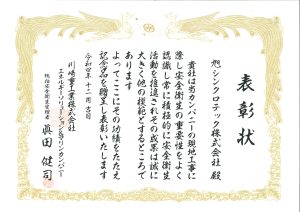 表彰状
旭シンクロテック株式会社 殿
貴社は当カンパニーの現地工事に
際し安全衛生の重要性をよく
認識し常に積極的に安全衛生
活動を推進されその成果は誠に
大きく他の模範とするところで
あります
よってここにその功績をたたえ
記念品を贈呈し表彰いたします
令和四年十二月
川崎重工業株式会社
エネルギーソリューション&マリンカンパニー
統括安全衛生管理者
眞田 健司